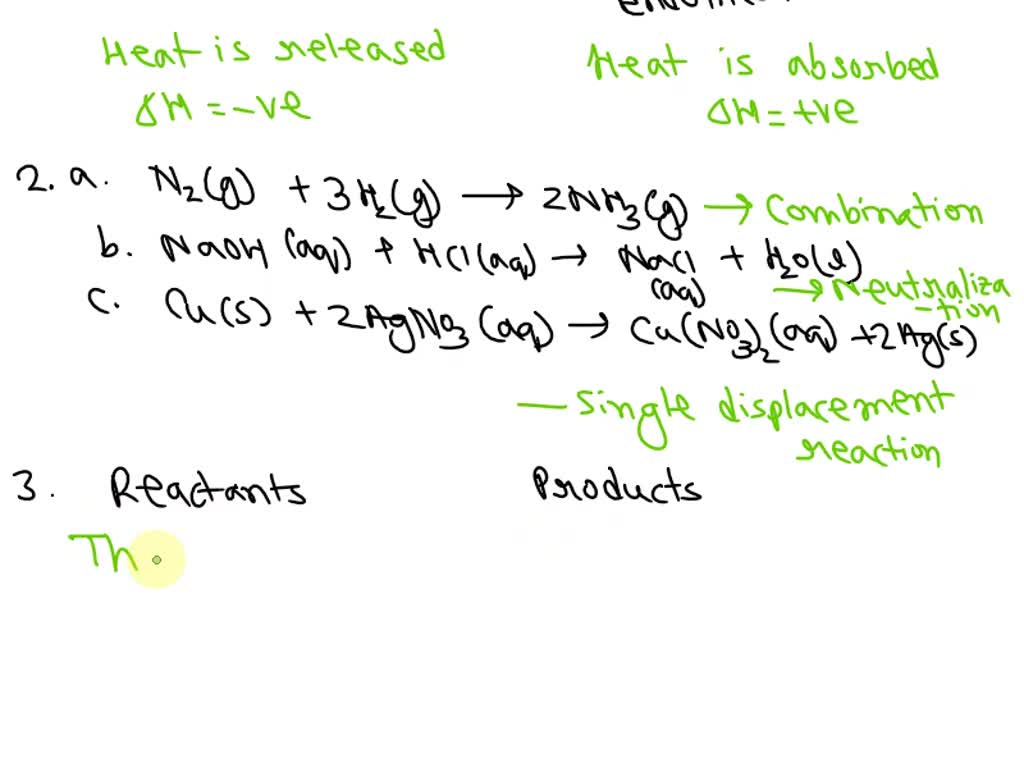 Heat is released
Heat is absorbed
ΔH = -ve
ΔH = +ve
2. a. N₂(g) + 3H₂(g) → 2NH₃(g) → Combination
b. NaOH (aq) + HCl (aq) → NaCl (aq) + H₂O(l)
→ Neutraliza-tion
c. Cu(s) + 2AgNO₃ (aq) → Cu(NO₃)₂ (aq) + 2Ag(s)
— Single displacement
reaction
3. Reactants Products
Th